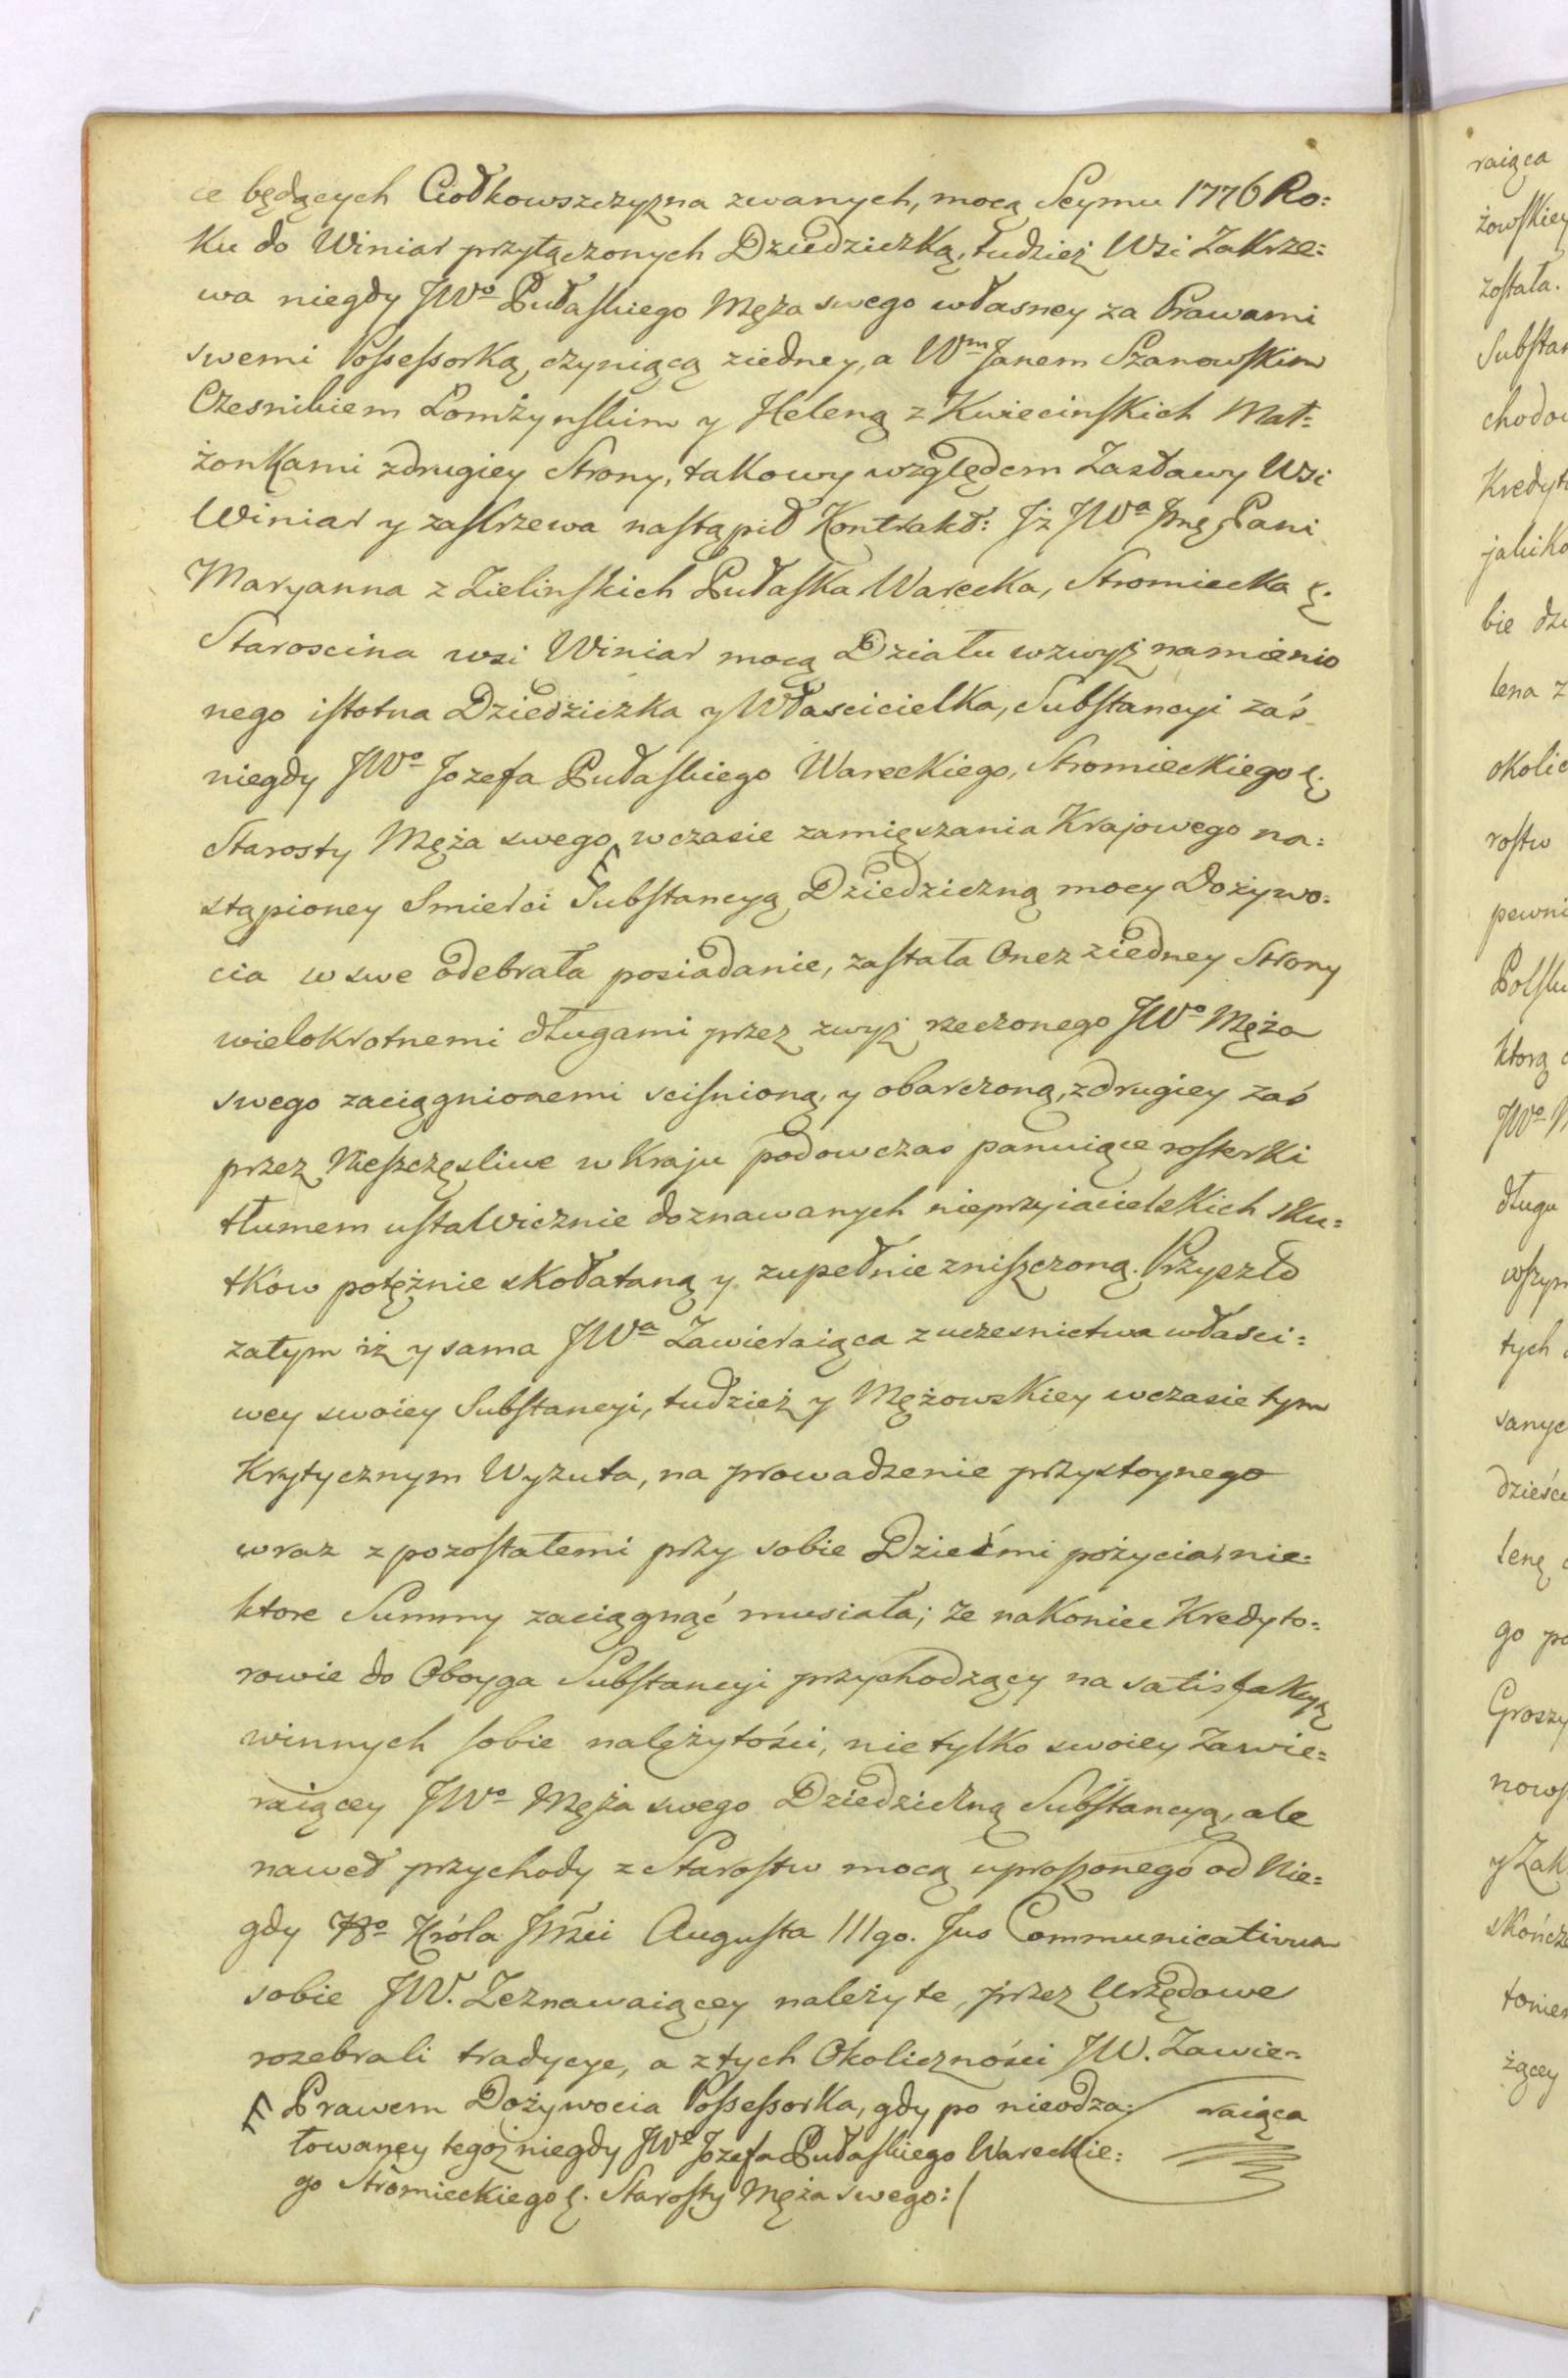 ce będących Ciołkowszczyzna zwanych, mocą Seymu 1776 Ro:
ku do Winiar przyłączonych Dziedziczką, tudzież Wsi Zakrze:
wa niegdy JWo Pułaskiego Męża swego własney za Prawami
swemi Possessorką, czyniącą ziedney, a Wm Janem Szanowskim
Czesnikiem Łomżynskim y Heleną z Kwiecinskich Mał:
żonkami zdrugiey Strony, takowy względem Zastawy Wsi
Winiar y zakrzewa nastąpił Kontrakt: Jż JWa Jmę Pani
Maryanna z Zielinskich Pułaska Warecka, Stromiecka &.
Staroscina wsi Winiar mocą Działu wzwyż namienio
nego istotna Dziedziczka y Włascicielka, Substancyi zaś
niegdy JWo Jozefa Pułaskiego Wareckiego, Stromieckiego &.
Starosty Męża swego wczasie zamięszania Krajowego na:
stąpioney Smierci Substancyą Dziedziczną mocy Dożywo:
cia w swe odebrała posiadanie, zastała Onez ziedney Strony
wielokrotnemi długami przez zwyż rzeczonego JWo Męża
swego zaciągnionemi scisnioną, y obarczoną, zdrugiey zaś
przez Nieszczęsliwe w Kraju podowczas panuiące rosterki
tłumem ustawicznie doznawanych nieprzyiacielskich sku:
tków potężnie skołataną y zupełnie zniszczoną. Przyszło
zatym iż y sama JWa Zawieraiąca z uczesnictwa własci:
wey swoiey Substancyi, tudzież y Mężowskiey wczasie tym
Krytycznym Wyzuta, na prowadzenie przystoynego
wraz z pozostałemi przy sobie Dziećmi pożycia, nie:
ktore Summy zaciągnąć musiała; że nakoniec Kredyto:
rowie do Oboyga Substancyi przychodzący na satisfakcyą
winnych sobie należytości, nie tylko swoiey Zawie:
raiącey JWo Męża swego Dziedziczną Substancyą, ale
nawet przychody z Starostw mocą uproszonego od Nie:
gdy Króla Jmści Augusta IIIgo. Jus Communicativum
sobie JW. Zeznawaiącey należyte, przez Urzędowe
rozebrali tradycye, a z tych Okoliczności JW. Zawie:
Prawem Dożywocia Possessorka, gdy po nieodża: raiąca
łowaney tegoż niegdy JWo Jozefa Pułaskiego Wareckie:
go Stromieckiego &. Starosty Męża swego:/
raiąca
żowskiey
została.
Substan
chodow
Kredyto
jakiko
bie dzi
lena z
okolic
rostw
pewni
Polsk
ktorą
JWo M
długu
wszys
tych
sanyc
dzieśc
tenę
go po
Groszy
nowsk
y Zak
skończ
tonier
żącey